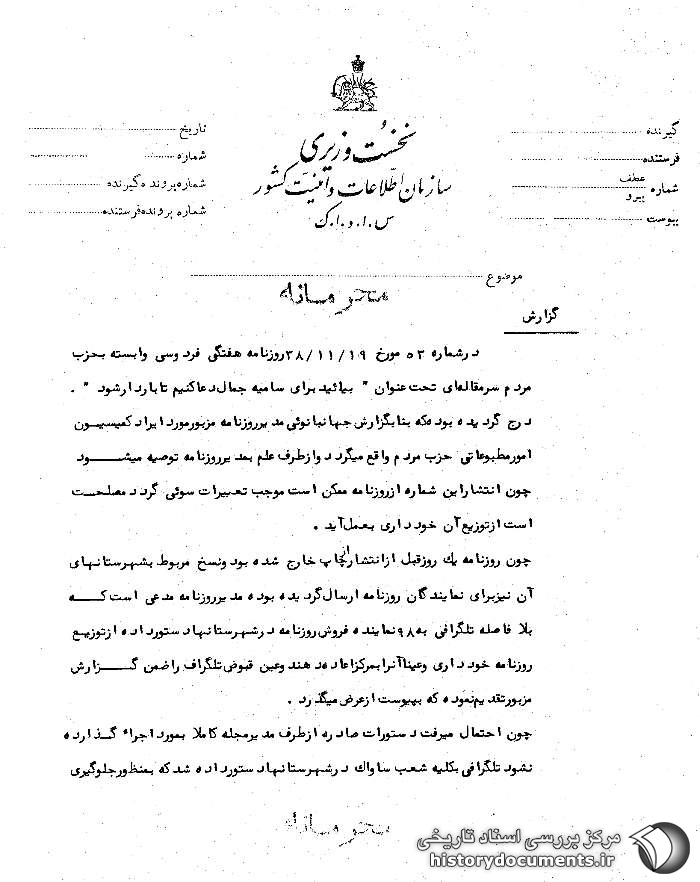 نخست وزیری
سازمان اطلاعات و امنیت کشور
س.ا.و.ا.ک
گیرنده
فرستنده
شماره عطف پیرو
پیوست
تاریخ
شماره
شماره پرونده گیرنده
شماره پرونده فرستنده
موضوع
محرمانه
گزارش
در شماره ۵۳ مورخ ۳۸/۱۱/۱۹ روزنامه هفتگی فردوسی وابسته بحزب
مردم سرمقاله‌ای تحت عنوان " بیائید برای سامیه جمال دعا کنیم تا باردار شود " .
درج گردیده بوده که بنا بگزارش جهانبانوئی مدیر روزنامه مزبور مورد ایراد کمیسیون
امور مطبوعاتی حزب مردم واقع میگردد و از طرف علم بمدیر روزنامه توصیه میشود
چون انتشار این شماره از روزنامه ممکن است موجب تعبیرات سوئی گردد مصلحت
است از توزیع آن خودداری بعمل آید .
چون روزنامه یک روز قبل از انتشار از چاپ خارج شده بود و نسخ مربوط بشهرستانهای
آن نیز برای نمایندگان روزنامه ارسال گردیده بوده مدیر روزنامه مدعی است که
بلافاصله تلگرافی به ۹۸ نماینده فروش روزنامه در شهرستانها دستور داده از توزیع
روزنامه خودداری و عیناً آنرا بمرکز اعاده دهند و عین قبوض تلگراف را ضمن گزارش
مزبور تقدیم نموده که بپیوست از عرض میگذرد .
چون احتمال میرفت دستورات صادره از طرف مدیر مجله کاملا بمورد اجراء گذارده
نشود تلگرافی بکلیه شعب ساواک در شهرستانها دستور داده شد که بمنظور جلوگیری
محرمانه
مرکز بررسی اسناد تاریخی
historydocuments.ir